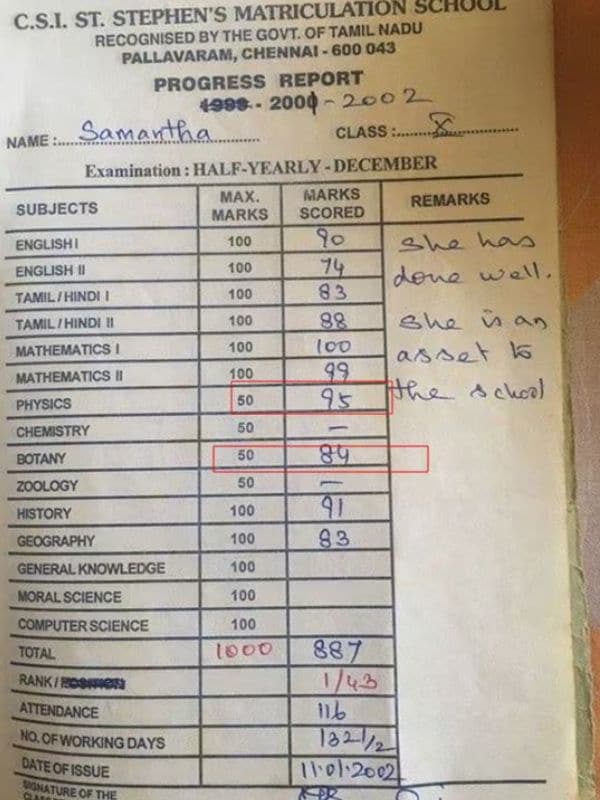 C.S.I. ST. STEPHEN'S MATRICULATION SCHOOL
RECOGNISED BY THE GOVT. OF TAMIL NADU
PALLAVARAM, CHENNAI - 600 043
PROGRESS REPORT
1999 - 2000 - 2002
NAME :..... Samantha ..... CLASS :..... X .....
Examination : HALF-YEARLY - DECEMBER
SUBJECTS MAX. MARKS MARKS SCORED REMARKS
ENGLISH I 100 90 She has
ENGLISH II 100 74 done well.
TAMIL / HINDI I 100 83
TAMIL / HINDI II 100 88 She is an
MATHEMATICS I 100 100 asset to
MATHEMATICS II 100 99 the school
PHYSICS 50 95
CHEMISTRY 50 —
BOTANY 50 84
ZOOLOGY 50 —
HISTORY 100 91
GEOGRAPHY 100 83
GENERAL KNOWLEDGE 100
MORAL SCIENCE 100
COMPUTER SCIENCE 100
TOTAL 1000 887
RANK / POSITION 1/43
ATTENDANCE 116
NO. OF WORKING DAYS 132 1/2
DATE OF ISSUE 11.01.2002
SIGNATURE OF THE